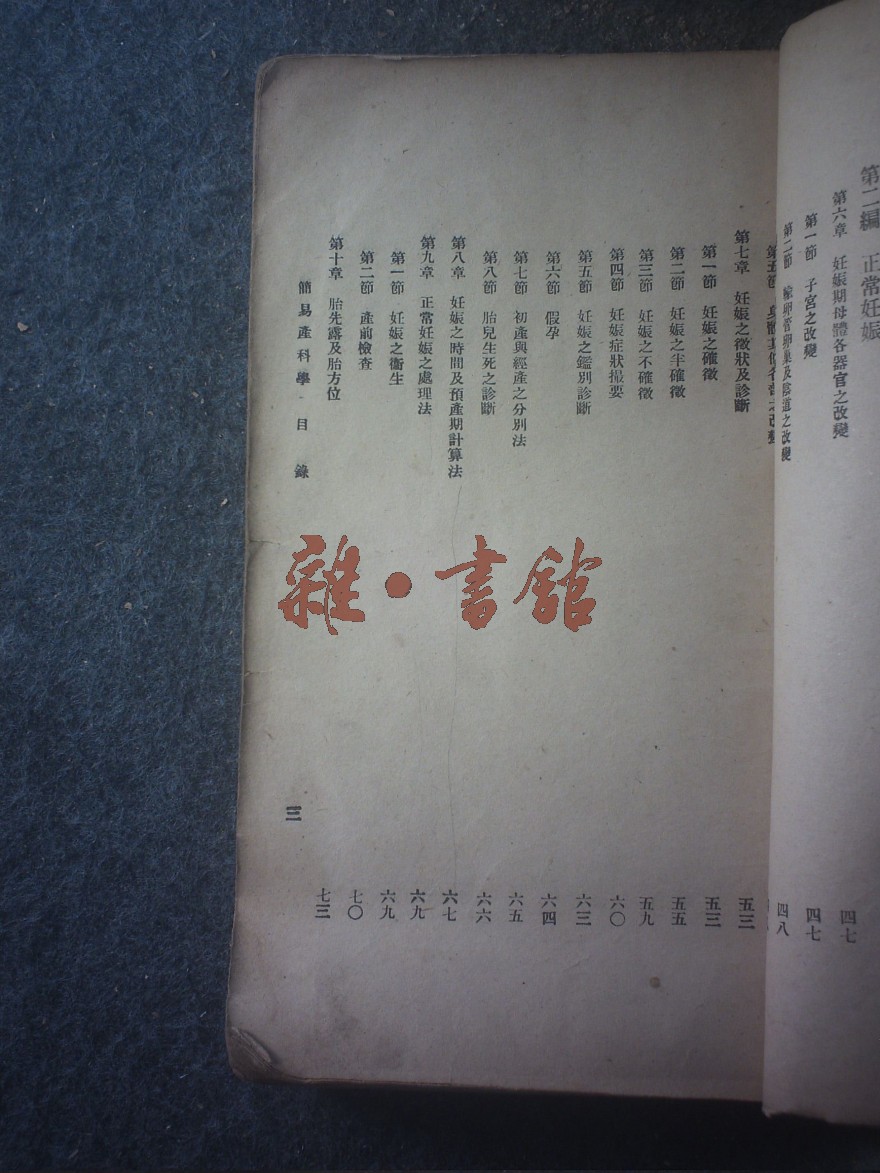 第二編 正常妊娠
第六章 妊娠期母體各器官之改變 四七
第一節 子宮之改變 四七
第二節 輸卵管卵巢及陰道之改變 四八
第五節
第七章 妊娠之徵狀及診斷 五三
第一節 妊娠之確徵 五三
第二節 妊娠之半確徵 五五
第三節 妊娠之不確徵 五九
第四節 妊娠症狀撮要 六〇
第五節 妊娠之鑑別診斷 六三
第六節 假孕 六四
第七節 初產與經產之分別法 六五
第八節 胎兒生死之診斷 六六
第八章 妊娠之時間及預產期計算法 六七
第九章 正常妊娠之處理法 六九
第一節 妊娠之衞生 六九
第二節 產前檢查 七〇
第十章 胎先露及胎方位 七三
簡易產科學 目錄 三
雜·書館